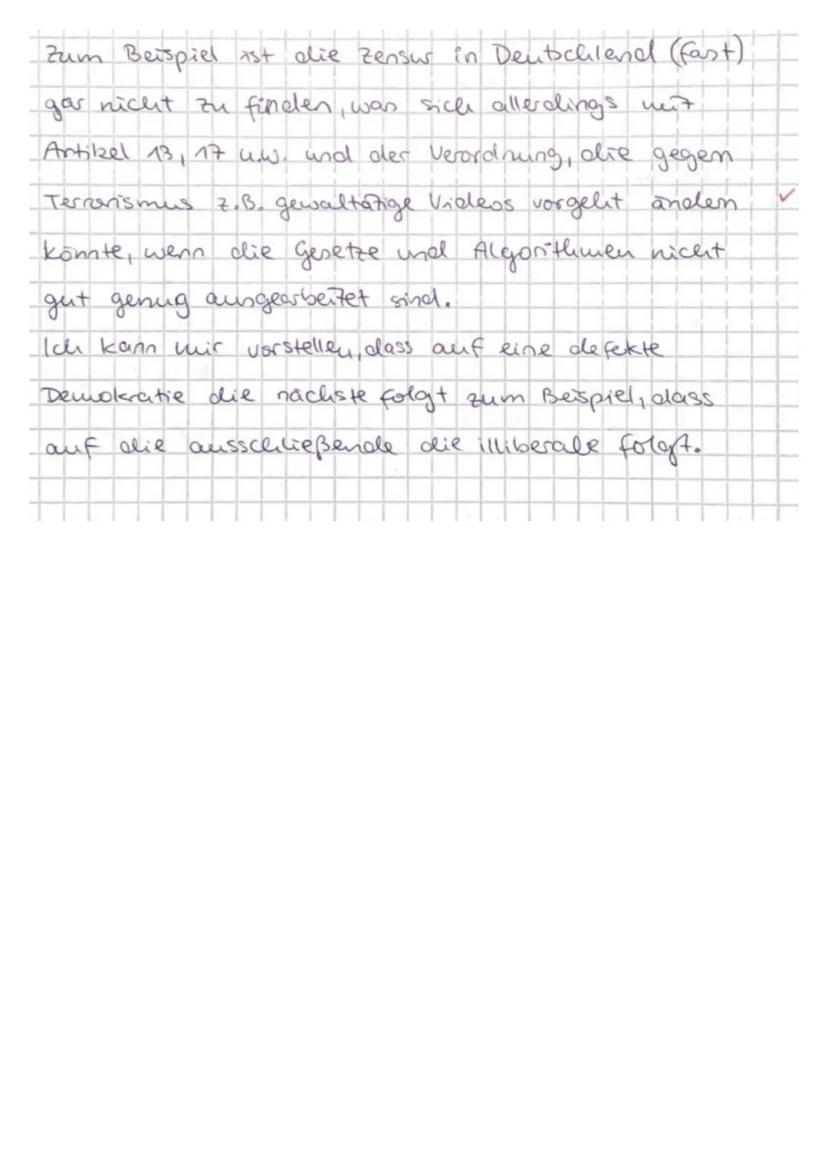 Zum Beispiel ist die Zensur in Deutschland (fast)
gar nicht zu finden, was sich allerdings mit
Artikel 13, 17 u.w. und der Verordnung, die gegen
Terrorismus z.B. gewaltätige Videos vorgeht ändern
könnte, wenn die Gesetze und Algorithmen nicht
gut genug ausgearbeitet sind.
Ich kann mir vorstellen, dass auf eine defekte
Demokratie die nächste folgt zum Beispiel, dass
auf die ausschließende die illiberale folgt.